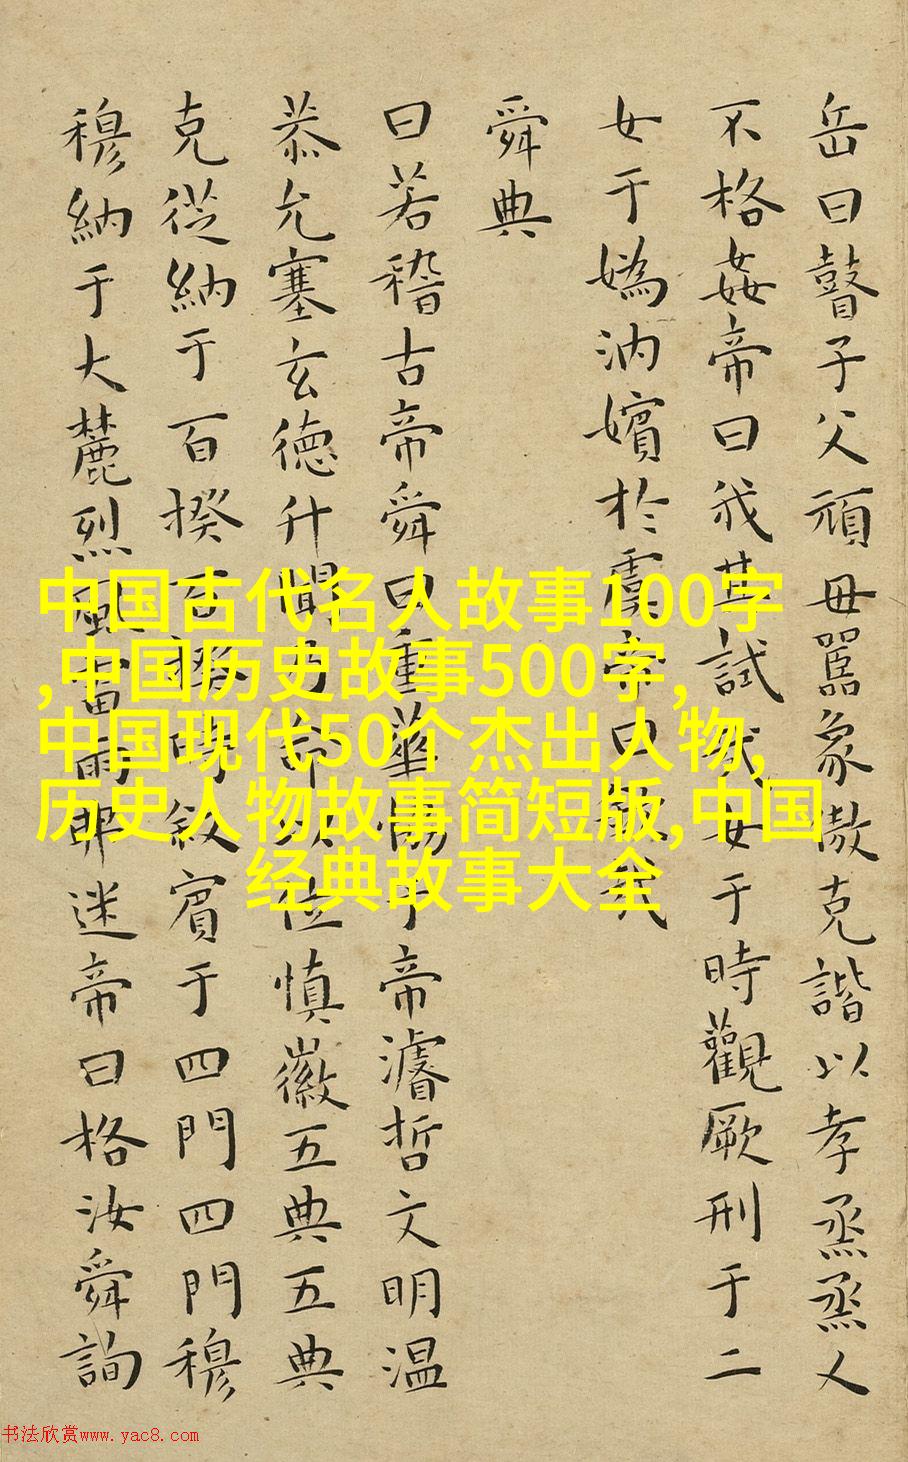 岳曰瞽子父頑毋嚚象傲克諧以孝烝烝乂
不格姦帝曰我其試哉女于時觀厥刑于二
女于嬀汭嬪於虞帝曰欽哉
舜典
曰若稽古帝舜曰重華協于帝濬哲文明温
恭允塞玄德升聞乃命以位慎徽五典五典
克從納于百揆百揆時敘賓于四門四門穆
穆納于大麓烈風雷雨弗迷帝曰格汝舜詢
中国古代名人故事100字
,中国历史故事500字,
中国现代50个杰出人物,
历史人物故事简短版,中国
经典故事大全
书法欣赏www.yac8.com